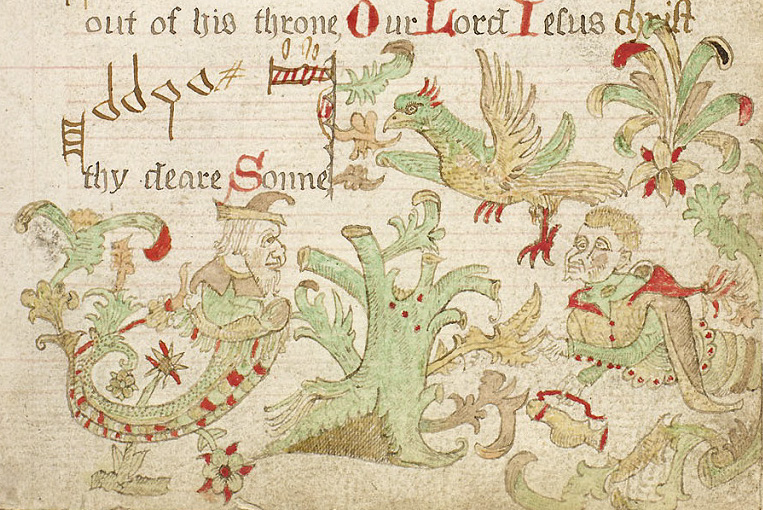 out of his throne, Our Lord Iesus christ
thy deare Sonne